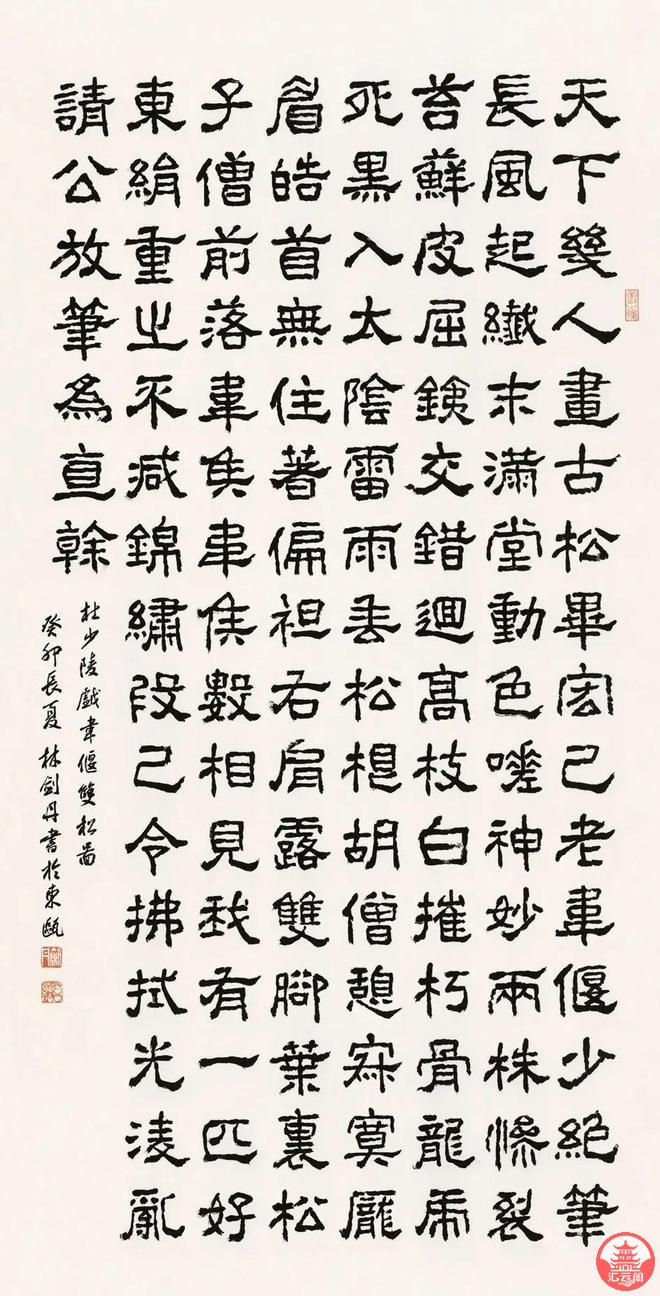 天下幾人畫古松畢宏已老韋偃少絕筆
長風起纖末滿堂動色嗟神妙兩株慘裂
苔蘚皮屈鐵交錯迴高枝白摧朽骨龍虎
死黑入太陰雷雨垂松根胡僧憩寂寞龐
眉皓首無住著偏袒右肩露雙腳葉裏松
子僧前落韋侯韋侯數相見我有一匹好
東絹重之不減錦繡段已令拂拭光凌亂
請公放筆為直幹
杜少陵戲韋偃雙松圖
癸卯長夏林剑丹書於東甌
汇云阁